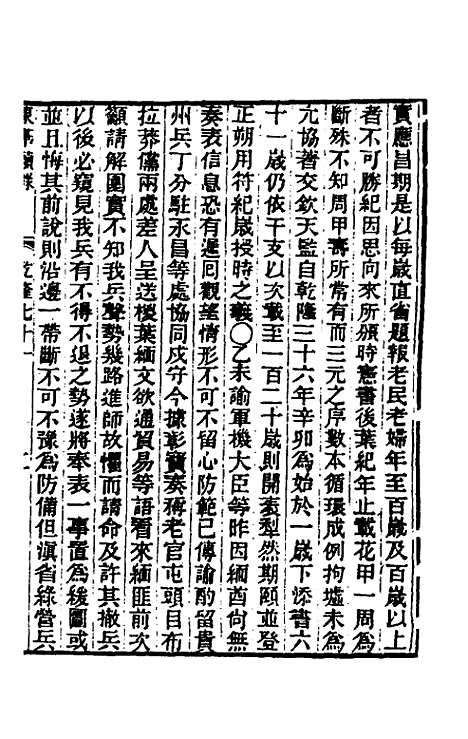 實應昌期是以每歲直省題報老民老婦年至百歲及百歲以上
者不可勝紀因思向來所頒時憲書後葉紀年止載花甲一周為
斷殊不知周甲壽所常有而三元之序數本循環成例拘墟未為
允協著交欽天監自乾隆三十六年辛卯為始於一歲下添書六
十一歲仍依干支以次載至一百二十歲則開袠犁然期頤並登
正朔用符紀歲授時之義〇乙未諭軍機大臣等昨因緬酋尙無
奏表信息恐有遲囘觀望情形不可不留心防範已傳諭酌留貴
州兵丁分駐永昌等處協同戍守今據彰寶奏蔣老官屯頭目布
拉莽儻兩處差人呈送椶葉緬文欲通貿易等語看來緬匪前次
籲請解圍實不知我兵聲勢幾路進師故懼而請命及許其撤兵
以後必窺見我兵有不得不退之勢遂將奉表一事置為緩圖或
並且悔其前說則沿邊一帶斷不可不豫為防備但滇省綠營兵
東華續錄 乾隆七十一